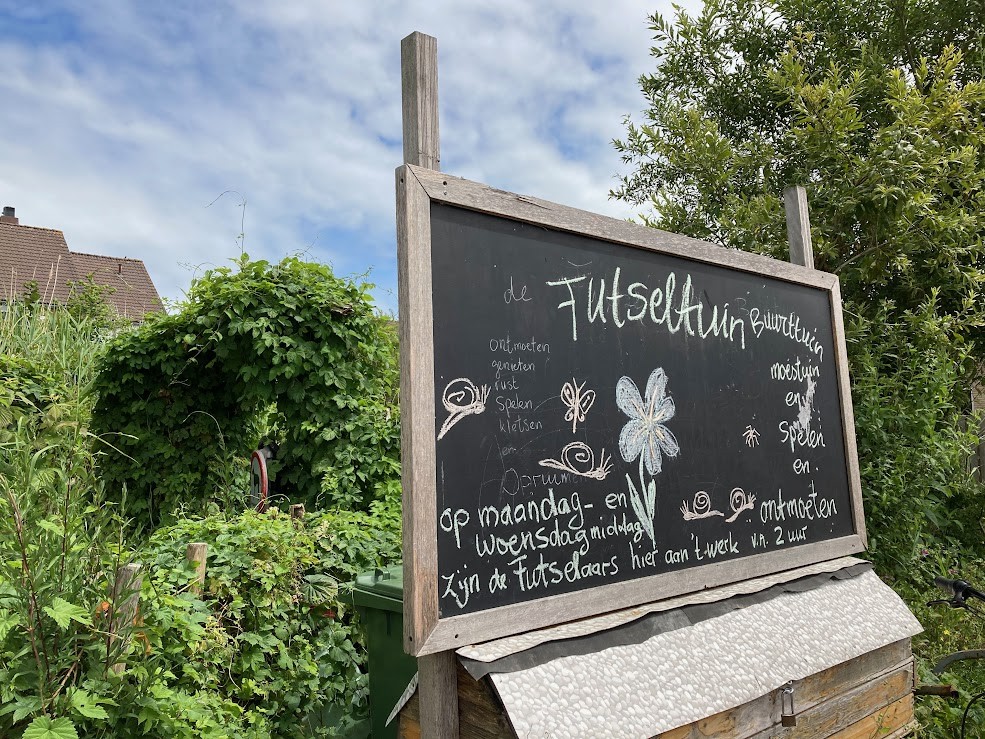 de Futseltuin
ontmoeten
genieten
rust
Spelen
kletsen
en
Opruimen
Buurttuin
moestuin
en
Spelen
en
ontmoeten
op maandag- en
woensdagmiddag
zijn de Futselaars hier aan 't werk v.a. 2 uur